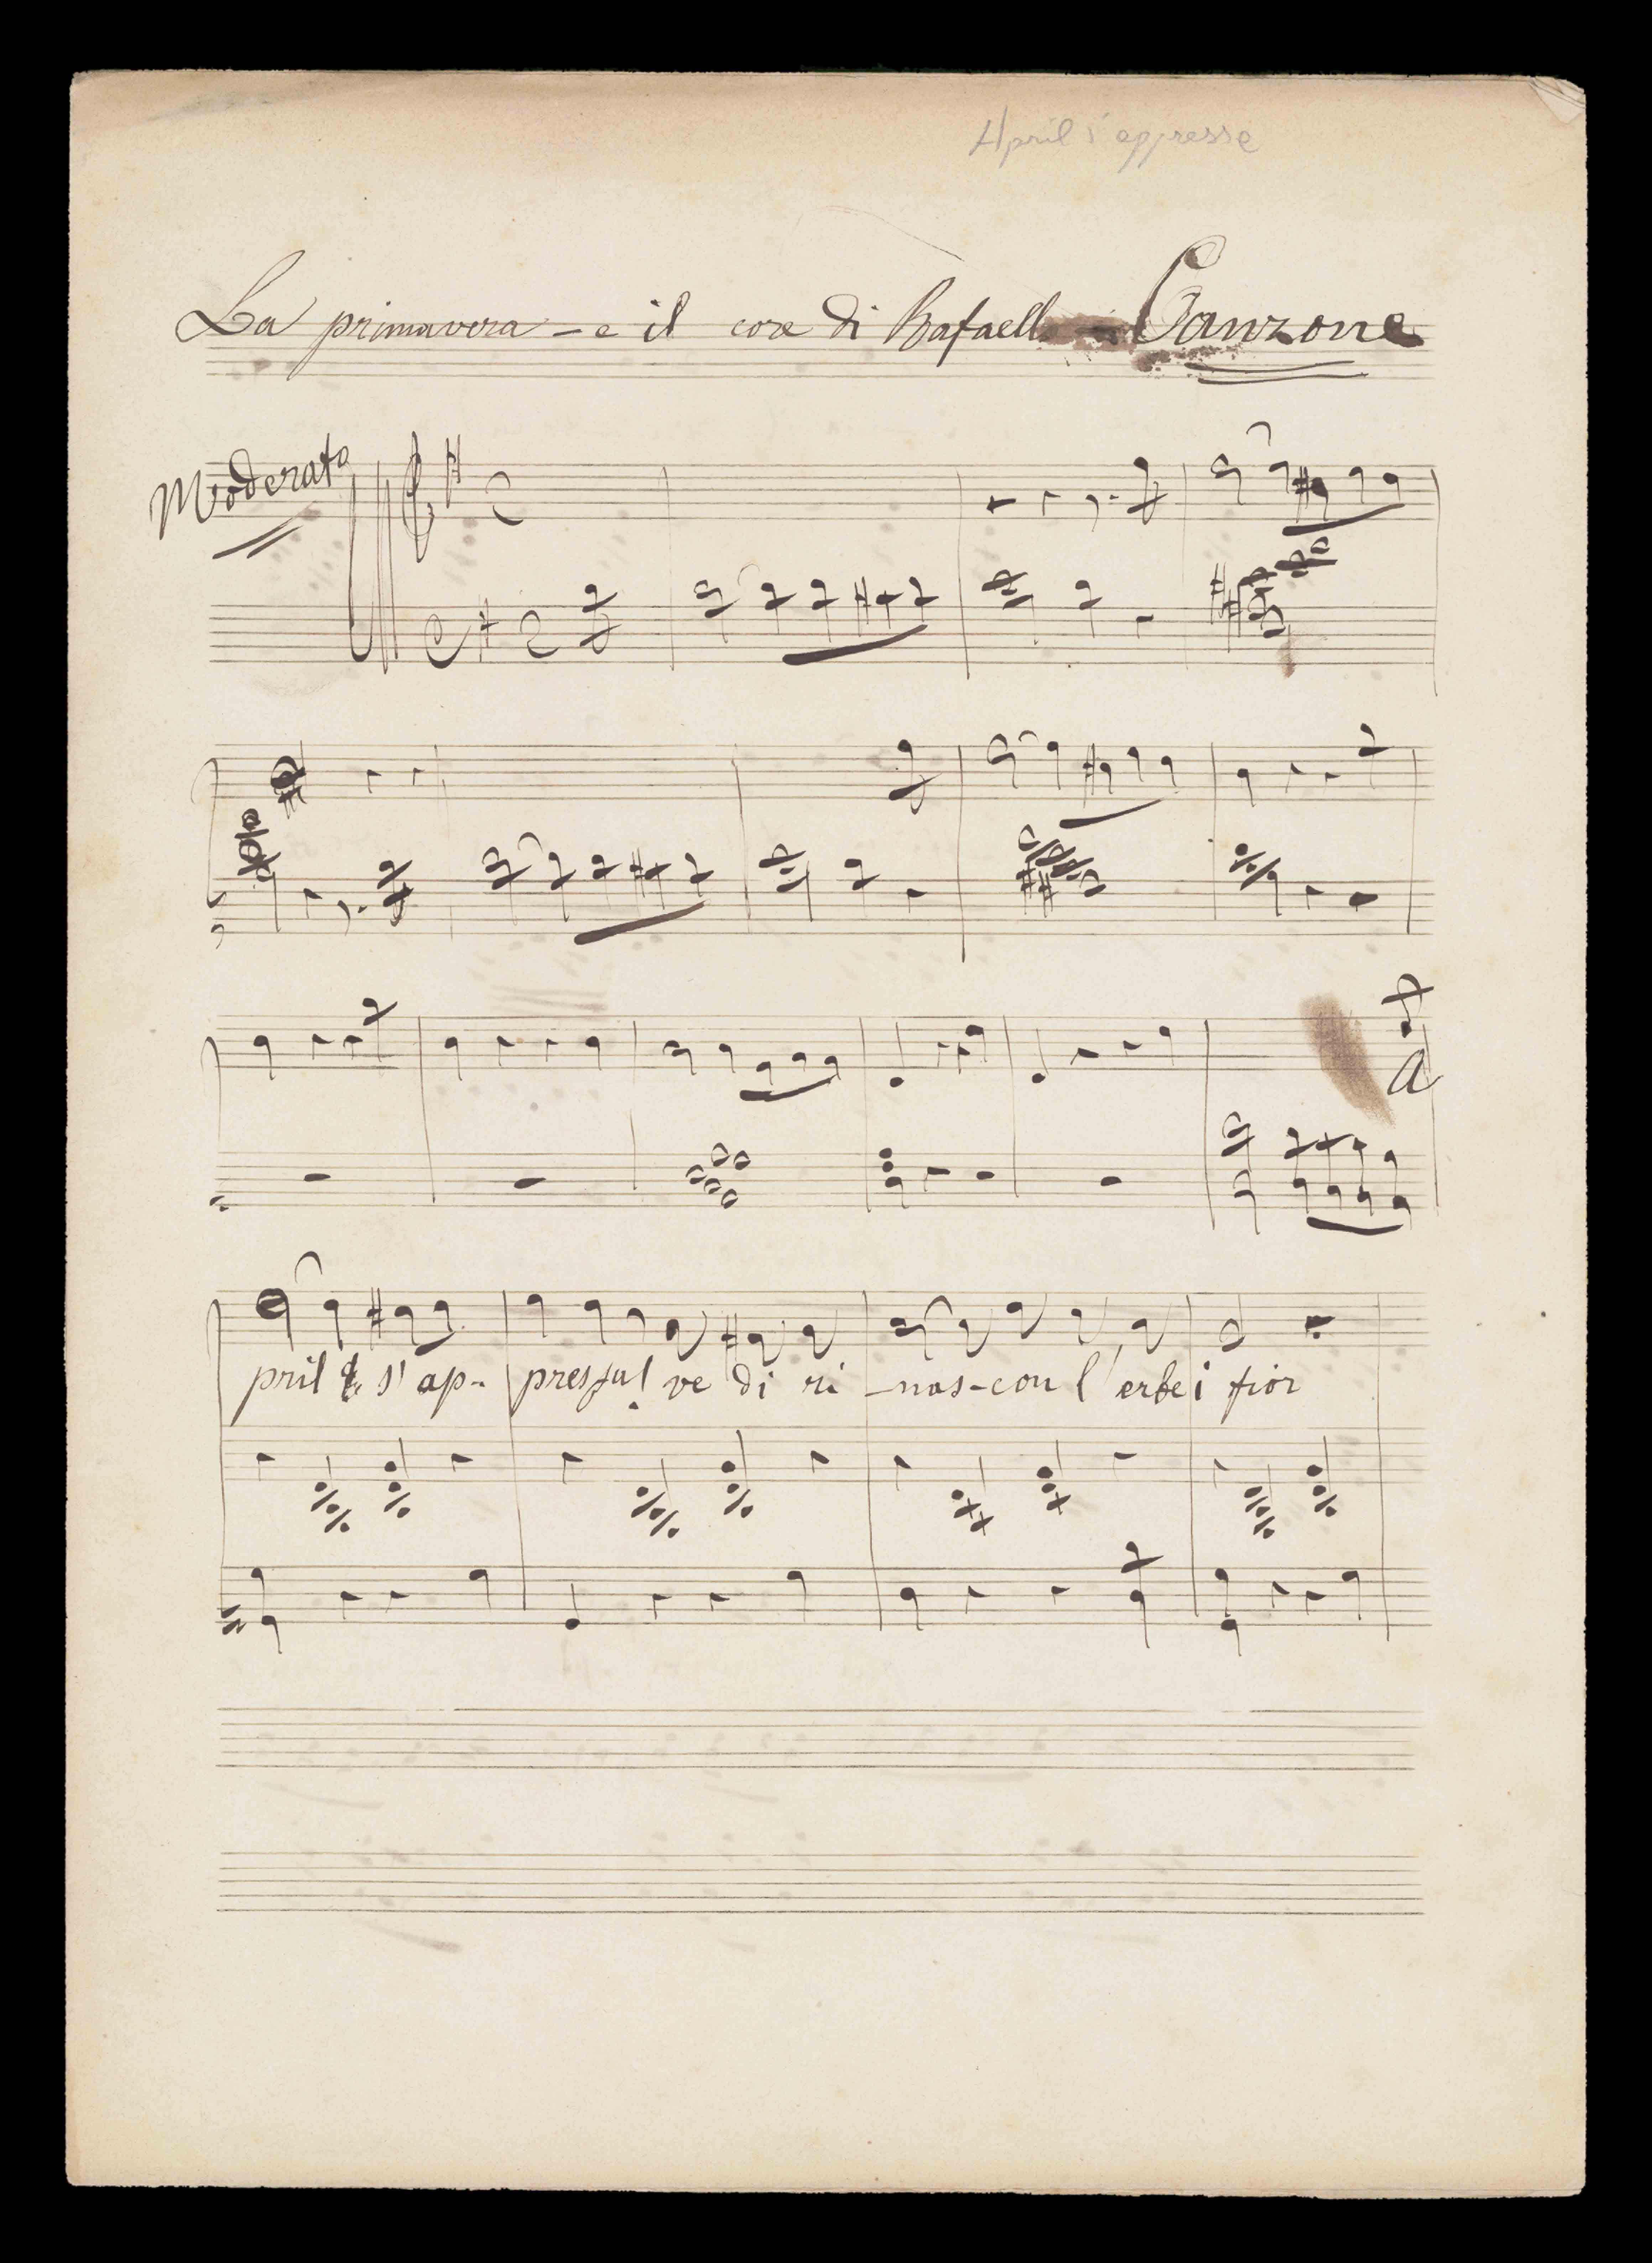 April s'appressa
La primavera - e il core di Rafaella Canzone
Moderato
A
pril s' ap- pressa! ve di ri -nas-con l'erbe i fior